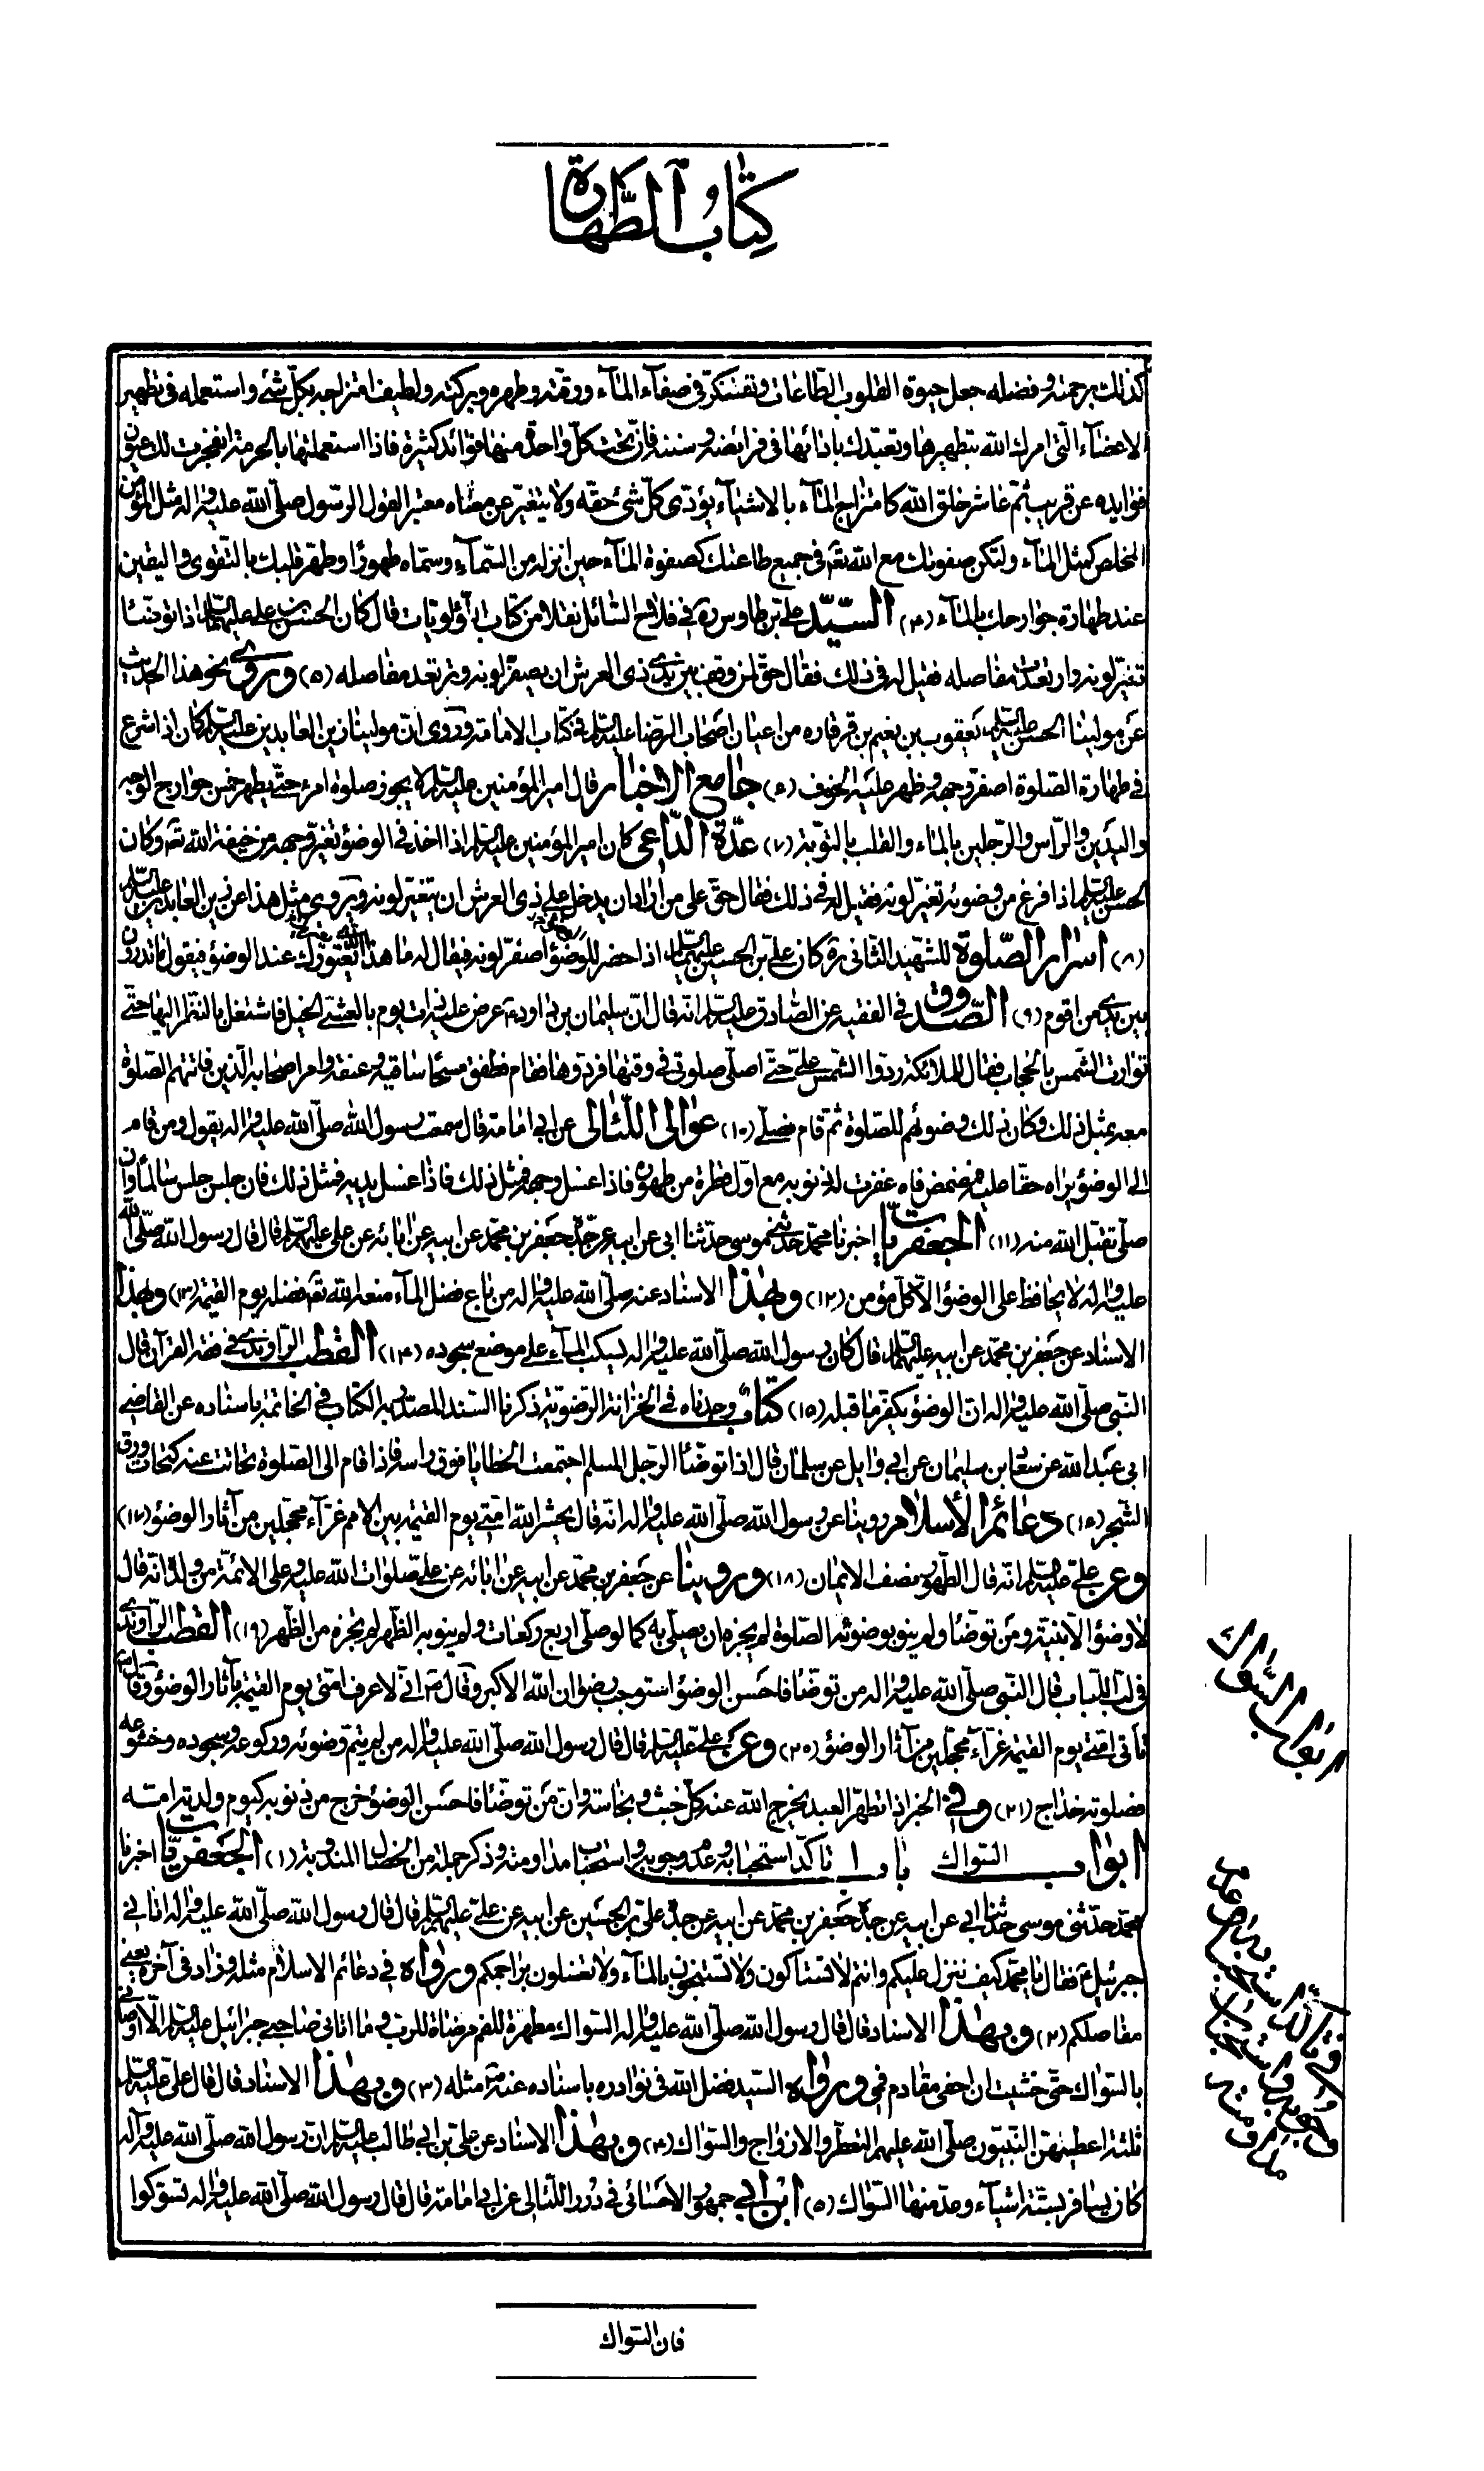 كتاب الطهارة
كذلك برحمته وفضله جعل حيوة القلوب الطاعات وتفكر في صفآء المآء ورقته وطهره وبركته ولطيف امتزاجه بكل شئ واستعمله في تطهير
الاعضآء التي امرك الله بتطهيرها وتعبدك بادائها في فرائضه وسننه فان تحت كل واحدة منها فوائد كثيرة فاذا استعملتها بالحرمة انفجرت لك عيون
فوايده عن قريب ثم عاشر خلق الله كامتزاج المآء بالاشيآء يؤدى كل شئ حقه ولا يتغير عن معناه معتبرا لقول الرسول صلى الله عليه واله مثل المؤمن
المخلص كمثل المآء ولتكن صفوتك مع الله تعـ في جميع طاعتك كصفوة المآء حين انزله من السمآء وسماه طهورا وطهر قلبك بالتقوى واليقين
عند طهارة جوارحك بالمآء (٤) السيد علي بن طاوس ره في فلاح السائل نقلا من كتاب اللؤلؤيات قال كان الحسن بن علي عليهما السلام اذا توضئا
تغير لونه وارتعدت مفاصله فقيل له في ذلك فقال حق لمن وقف بين يدي ذى العرش ان يصفر لونه وترتعد مفاصله (٥) وروى نحو هذا الحديث
عن مولينا الحسن عليه السلم يعقوب بن نعيم بن قرقاره من اعيان اصحاب الرضا عليه السلم في كتاب الامامة وروى ان مولينا زين العابدين عليه السلم كان اذا شرع
في طهارة الصلوة اصفر وجهه وظهر عليه الخوف (٦) جامع الاخبار قال امير المؤمنين عليه السلم لا يجوز صلوة امرء حتى يطهر خمس جوارح الوجه
واليدين والراس والرجلين بالماء والقلب بالتوبة (٧) عدة الداعي كان امير المؤمنين عليه السلم اذا اخذ في الوضوء تغير وجهه من خيفة الله تعـ وكان
الحسن عليه السلم اذا فرغ من وضوئه تغير لونه فقيل له في ذلك فقال حق على من اراد ان يدخل على ذى العرش ان يتغير لونه ويروى مثل هذا عن زين العابدين عليه السلم
(٨) اسرار الصلوة للشهيد الثانى ره كان علي بن الحسين عليهما السلم اذا حضر للوضؤ اصفر لونه فيقال له ما هذا الذي يعتورك عند الوضؤ فيقول ما تدرون
بين يدي من اقوم (٩) الصدوق في الفقيه عن الصادق عليه السلم انه قال ان سليمان بن داود ع عرض عليه ذات يوم بالعشي الخيل فاشتغل بالنظر اليها حتى
توارت الشمس بالحجاب فقال للملائكة ردوا الشمس علي حتى اصلي صلوتي في وقتها فردوها فقام فطفق مسحا ساقيه وعنقه وامر اصحابه الذين فاتتهم الصلوة
معه بمثل ذلك وكان ذلك وضوئهم للصلوة ثم قام فصلى (١٠) عوالى اللئالى عن ابي امامة قال سمعت رسول الله صلى الله عليه واله يقول ومن قام
الى الوضؤ يراه حقا عليه فمضمض فاه غفرت له ذنوبه مع اول قطرة من طهوره فاذا غسل وجهه فمثل ذلك فاذا غسل يديه فمثل ذلك فان جلس جلس سالما وان
صلى تقبل الله منه (١١) الجعفريات اخبرنا محمد حدثني موسى حدثنا ابى عن ابيه عن جده جعفر بن محمد عن ابيه عن ابائه عن علي عليهم السلم قال قال رسول الله صلى الله
عليه واله لا يحافظ على الوضؤ الا كل مؤمن (١٢) وبهذا الاسناد عنه صلى الله عليه واله من باع فضل المآء منعه الله تعـ فضله يوم القيمة (١٣) وبهذا
الاسناد عن جعفر بن محمد عن ابيه عليهما السلم قال كان رسول الله صلى الله عليه واله يسكب المآء على موضع سجوده (١٤) القطب الراوندي في فقه القرآن قال
النبي صلى الله عليه واله ان الوضوء يكفر ما قبله (١٥) كتاب وجدناه في الخزانة الرضوية ذكرنا السند المصدر به الكتاب في الخاتمة باسناده عن القاضي
ابى عبد الله عن سليمان عن ابي وايل عن سلمان قال اذا توضئا الرجل المسلم اجتمعت الخطايا فوق راسه فاذا قام الى الصلوة تحاتت عنه كتحات ورق
الشجر (١٦) دعائم الاسلام روينا عن رسول الله صلى الله عليه واله انه قال يحشر الله امتي يوم القيمة بين الامم غرآء محجلين من آثار الوضوء (١٧)
وعن علي عليه السلم انه قال الطهور نصف الايمان (١٨) وروينا عن جعفر بن محمد عن ابيه عن ابائه عن علي صلوات الله عليه وعلى الائمة من ولده انه قال
لا وضؤ الا بنية ومن توضئا ولم ينو بوضوئه الصلوة لم يجزه ان يصلي به كما لو صلى اربع ركعات ولم ينو به الظهر لم يجزه من الظهر (١٩) القطب الراوندي
في لب اللباب قال النبي صلى الله عليه واله من توضئا فاحسن الوضؤ استوجب رضوان الله الاكبر وقال ص انى لاعرف امتى يوم القيمة بآثار الوضؤ وقال ص
تأتي امتي يوم القيمة غرآء محجلين من آثار الوضؤ (٢٠) وعن علي عليه السلم قال قال رسول الله صلى الله عليه واله من لم يتم وضوئه وركوعه وسجوده وخشوعه
فصلوته خداج (٢١) وفي الخبر اذا تطهر العبد يخرج الله عنه كل خبث ونجاسة وان من توضئا فاحسن الوضؤ خرج من ذنوبه كيوم ولدته امه
ابواب السواك باب ١ تاكد استحبابه وعدم وجوبه واستحباب مداومته وذكر جملة من الخصال المندوبة (١) الجعفريات اخبرنا
محمد حدثني موسى حدثنا ابي عن ابيه عن جده جعفر بن محمد عن ابيه عن جده علي بن الحسين عن ابيه عن علي عليهم السلم قال قال رسول الله صلى الله عليه واله اتاني
جبرئيل ع فقال يا محمد كيف ننزل عليكم وانتم لا تستاكون ولا تستنجون بالمآء ولا تغسلون براجمكم ورواه في دعائم الاسلام مثله وزاد في آخره يعني
مفاصلكم (٢) وبهذا الاسناد قال قال رسول الله صلى الله عليه واله السواك مطهرة للفم مرضاة للرب وما اتانى صاحبي جبرائيل عليه السلم الا اوصاني
بالسواك حتى خشيت ان احفى مقادم في ورواه السيد فضل الله في نوادره باسناده عنه ص مثله (٣) وبهذا الاسناد قال قال علي عليه السلم
ثلثة اعطيهن النبيون صلى الله عليهم التعطر والازواج والسواك (٤) وبهذا الاسناد عن علي بن ابي طالب عليه السلم ان رسول الله صلى الله عليه وآله
كان يسافر بستة اشيآء وعد منها السواك (٥) ابن ابي جمهور الاحسائى في درر اللئالى عن ابي امامة قال قال رسول الله صلى الله عليه واله تسوكوا
ابواب السواك
تاكد استحبابه وعدم
وجوبه واستحباب
مداومته
فان السواك